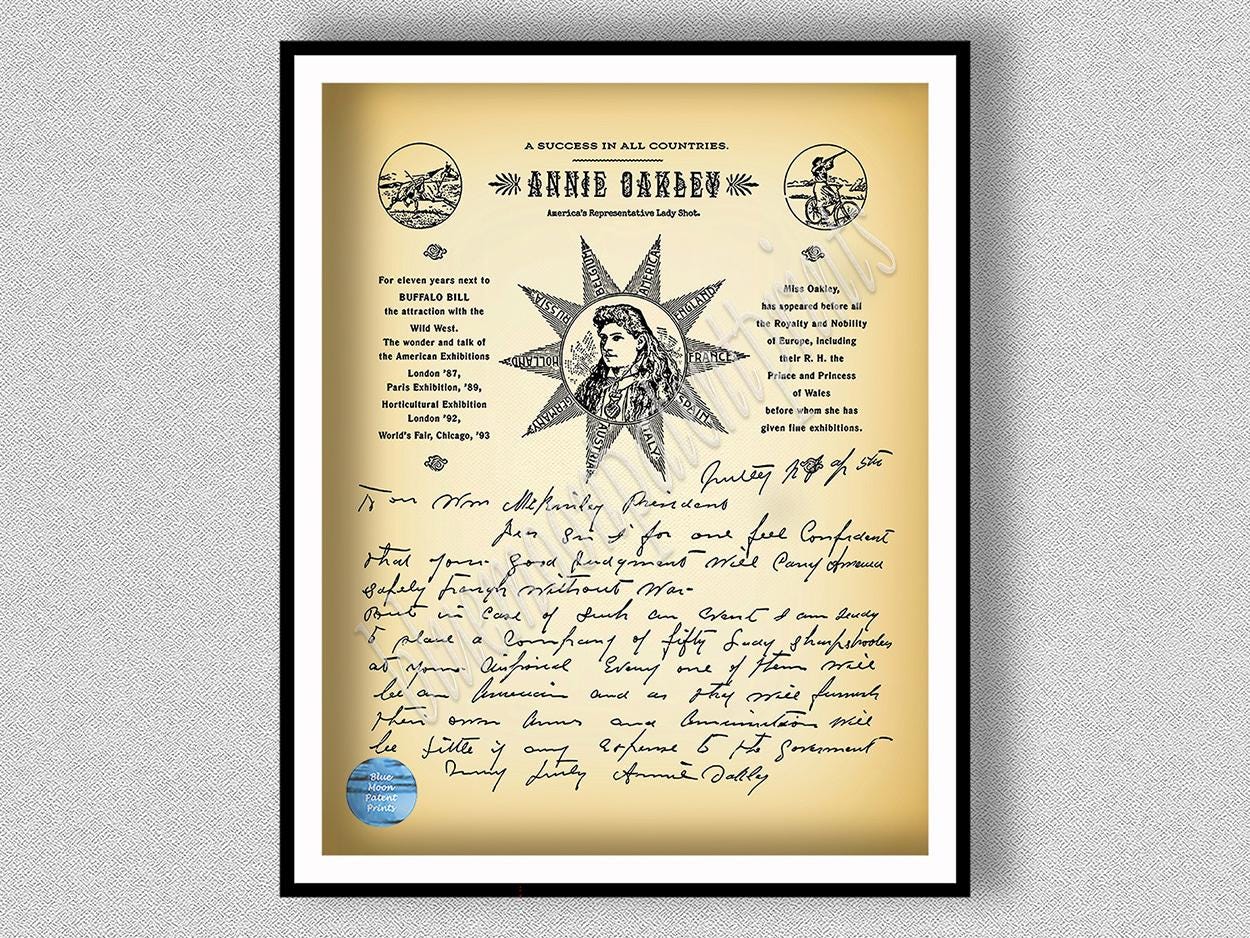 A SUCCESS IN ALL COUNTRIES.
ANNIE OAKLEY
America's Representative Lady Shot.
For eleven years next to
BUFFALO BILL
the attraction with the
Wild West.
The wonder and talk of
the American Exhibitions
London '87,
Paris Exhibition, '89,
Horticultural Exhibition
London '92,
World's Fair, Chicago, '93
BELGIUM
AMERICA
ENGLAND
FRANCE
SPAIN
ITALY
AUSTRIA
GERMANY
HOLLAND
RUSSIA
Miss Oakley,
has appeared before all
the Royalty and Nobility
of Europe, including
their R. H. the
Prince and Princess
of Wales
before whom she has
given fine exhibitions.
Nutley N J Ap 5th
To Wm McKinley President
Dear Sir I for one feel Confident
that your good judgment will Carry America
safely through without War-
But in Case of such an Event I am ready
to place a Company of fifty Lady sharpshooters
at your disposal Every one of them will
be an American and as they will furnish
their own Arms and Ammunition will
be little if any expense to the government
Very truly Annie Oakley
bluemoonpatentprints
Blue
Moon
Patent
Prints